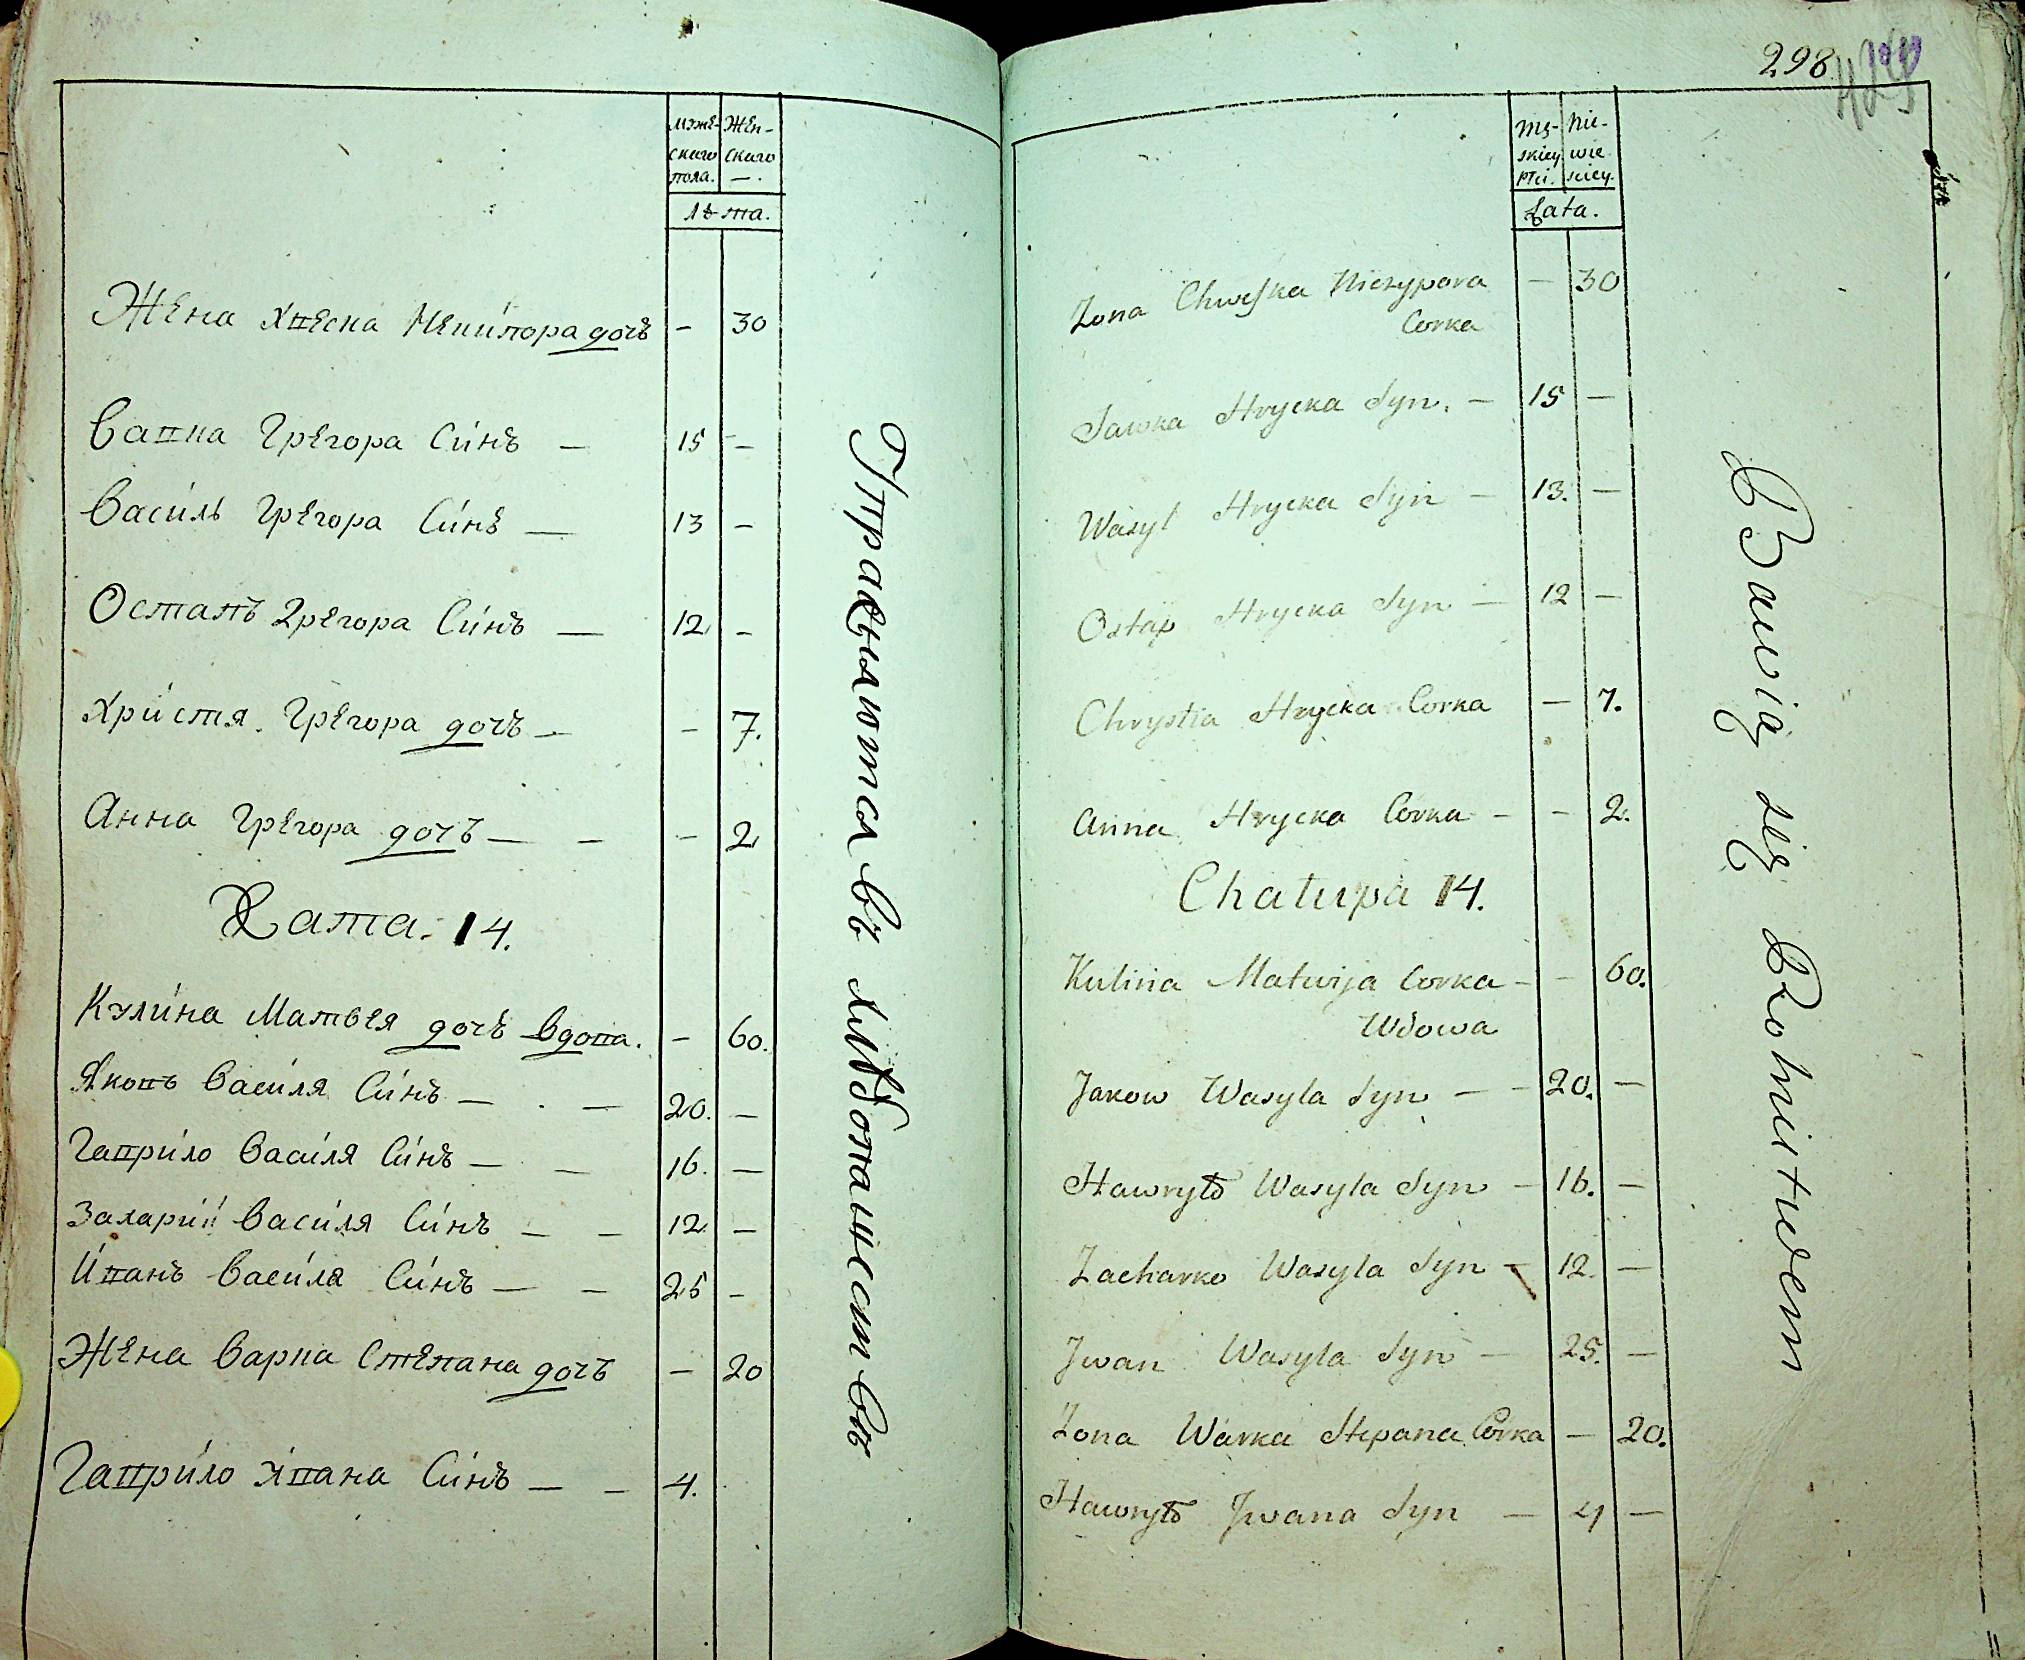 мужескаго пола. Женскаго —.
лѣта.
Жена Хвеска Нечипора дочь — 30
Савка Грегора Синъ — 15 —
Василь Грегора Синъ — 13 —
Остапъ Грегора Синъ — 12 —
Христя Грегора дочъ — — 7.
Анна Грегора дочъ — — — 2
Хата. 14.
Кулина Матвея дочъ вдова. — 60.
Яковъ Василя Синъ — — 20. —
Гаврило Василя Синъ — — 16. —
Захарий Василя Синъ — — 12 —
Иванъ Василя Синъ — — 25 —
Жена Варка Степана дочъ — 20
Гаврило Ивана Синъ — — 4.
Упражняются въ хлѣбопашествѣ
298
Męskiey Płci. Niewieściey.
Łata.
Żona Chweska Niczypora — 30
Corka
Sawka Hrycka Syn. — 15 —
Wasyl Hrycka Syn — 13. —
Ostap Hrycka Syn — 12 —
Chrystia Hrycka Corka — 7.
Anna Hrycka Corka — — 2.
Chałupa 14.
Kulina Matwija Corka — — 60.
Wdowa
Jakow Wasyla Syn — — 20. —
Hawryło Wasyla Syn — 16. —
Zacharko Wasyla Syn — 12. —
Jwan Wasyla Syn — 25. —
Żona Warka Stepana Corka — 20.
Hawryło Jwana Syn — 4 —
Bawią się Rolnictwem